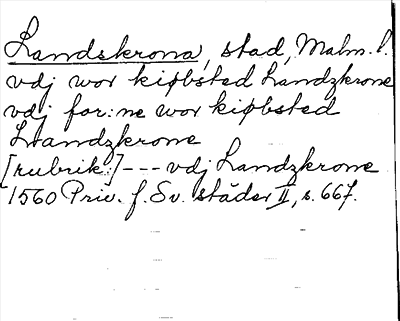 Landskrona, stad, Malm. l.
vdj wor kiøbsted Landzkrone
vdj for:ne wor kiøbsted
Landzkrone
[rubrik:] --- vdj Landzkrone
1560 Priv. f. Sv. städer II, s. 667.